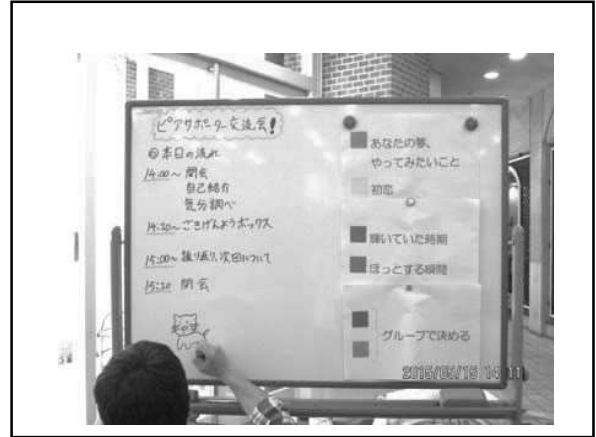 ピアサポーター交流会!
◎本日の流れ
14:00~ 開会
自己紹介
気分調べ
14:20~ ごきげんようボックス
15:00~ 振り返り、次回について
15:20 閉会
あなたの夢、
やってみたいこと
初恋
輝いていた時期
ほっとする瞬間
グループで決める
2015/05/15 14:11